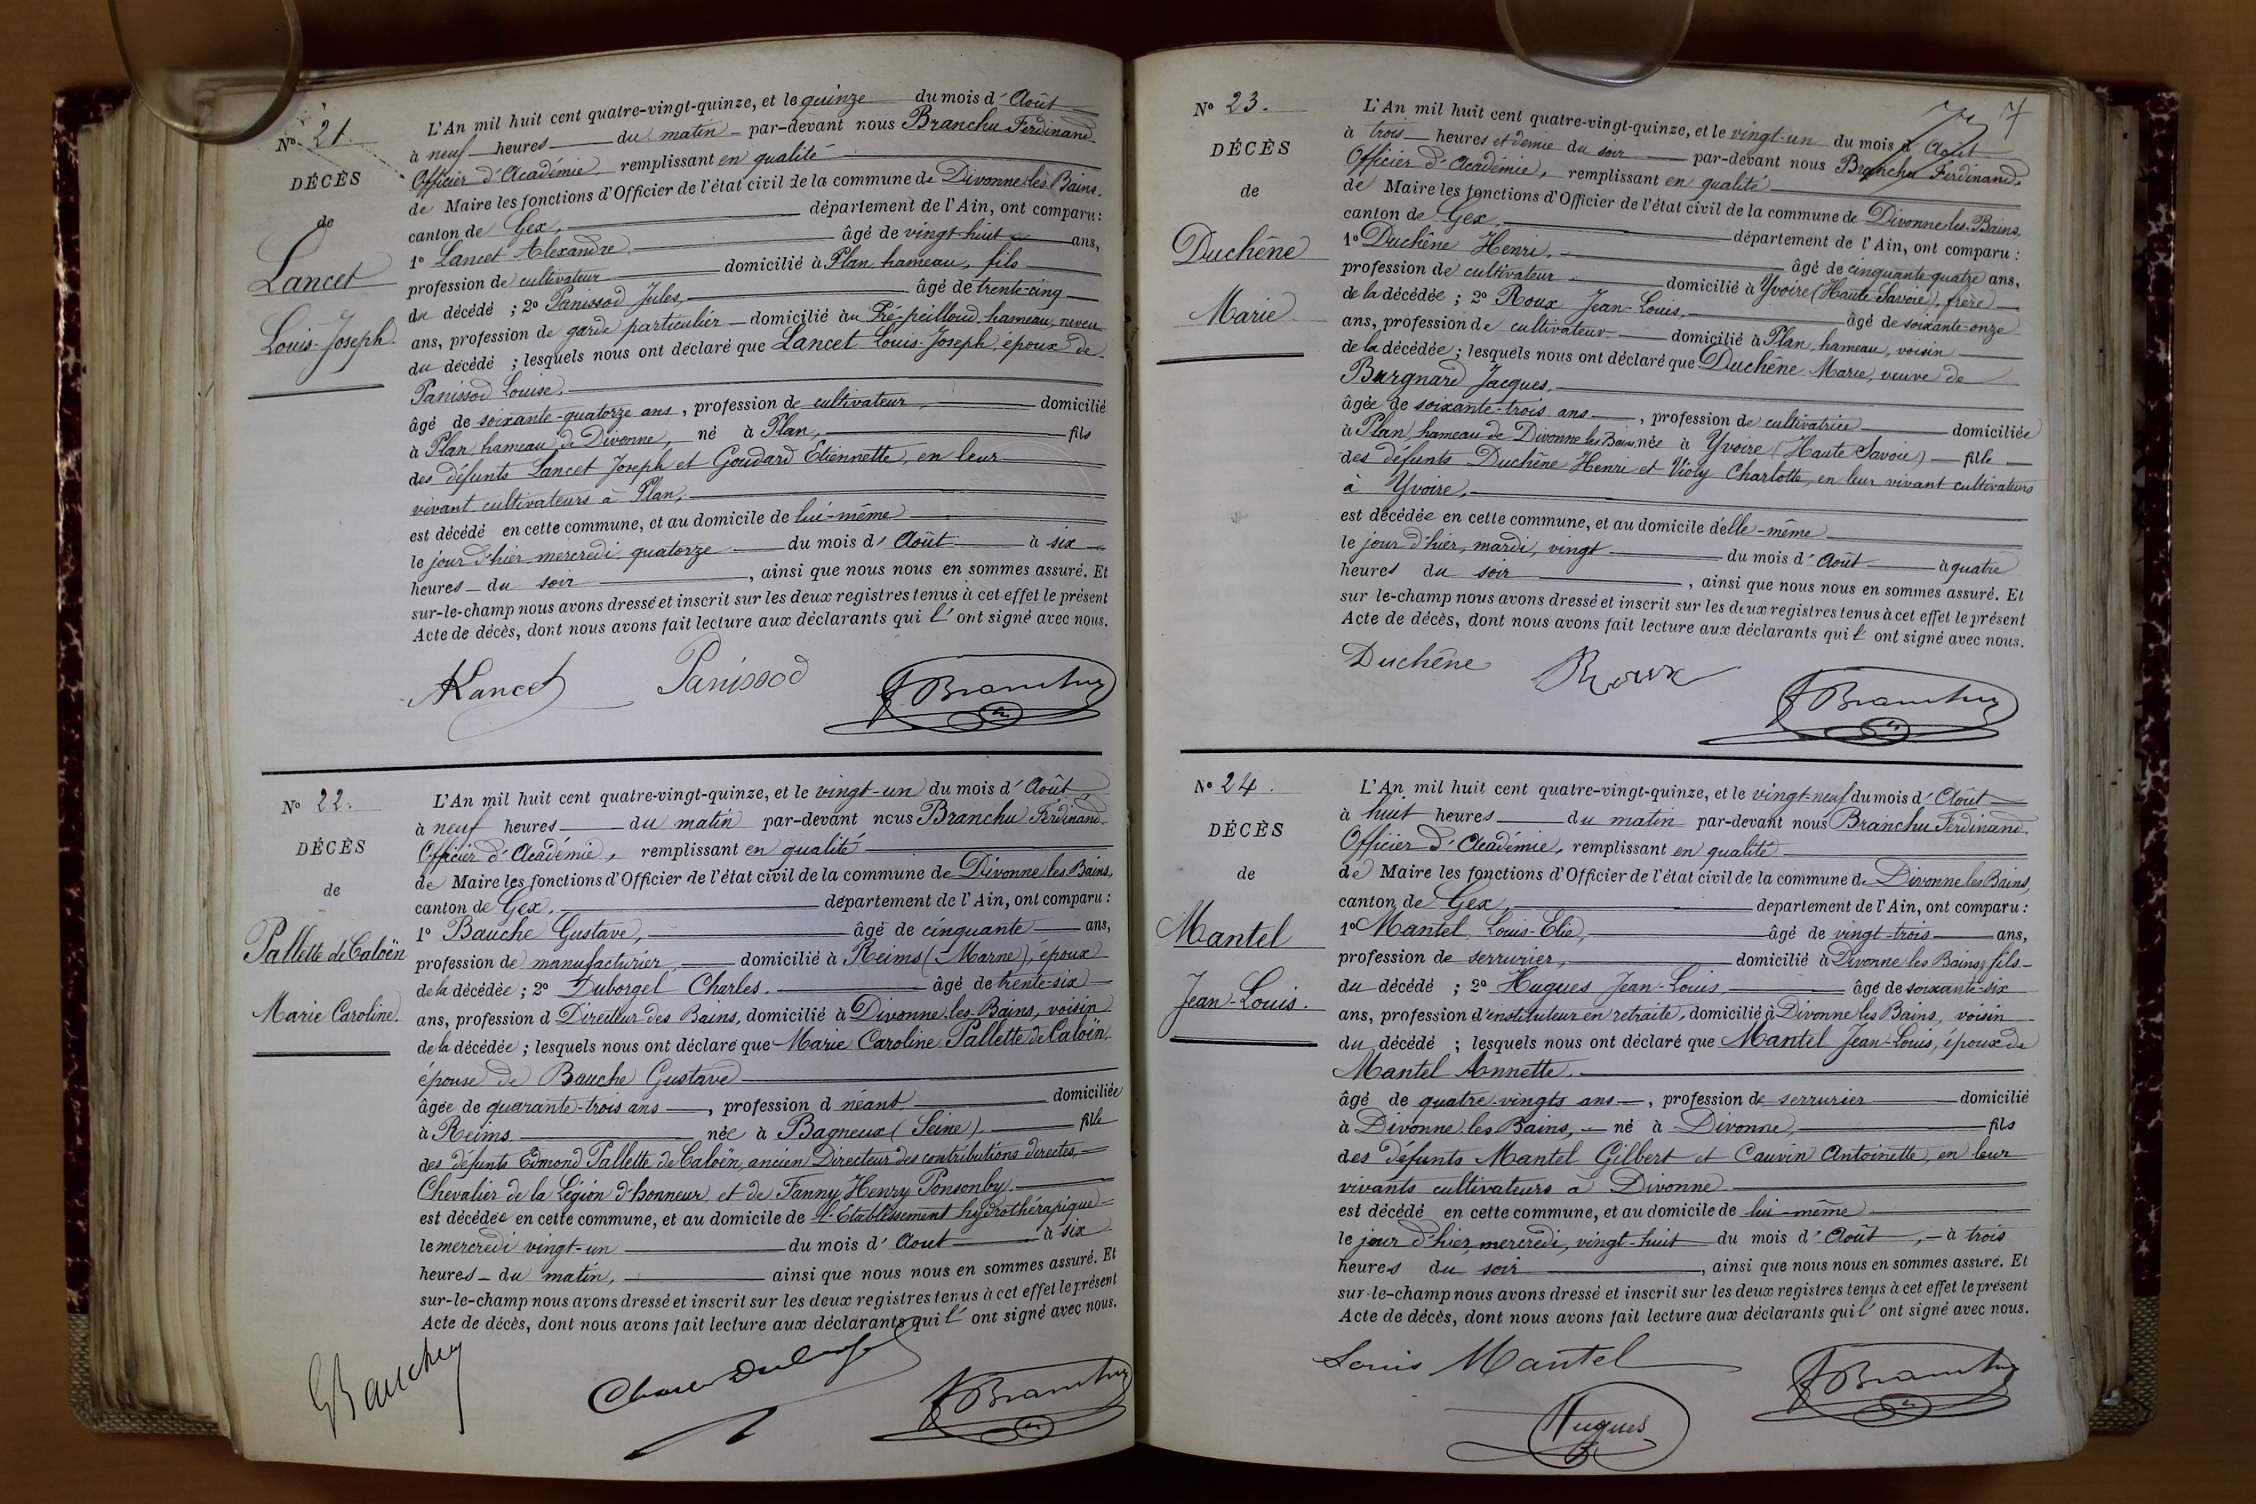 Nº 21.
DÉCÈS
de
Lancet
Louis-Joseph
L'An mil huit cent quatre-vingt-quinze, et le quinze du mois d'Août
à neuf heures du matin par-devant nous Branchu Ferdinand
Officier d'Académie, remplissant en qualité
de Maire les fonctions d'Officier de l'état civil de la commune de Divonne-les-Bains.
canton de Gex, département de l'Ain, ont comparu :
1º Lancet Alexandre. âgé de vingt huit ans,
profession de cultivateur domicilié à Plan hameau, fils
du décédé ; 2º Panissod Jules, âgé de trente-cinq
ans, profession de garde particulier domicilié au Pré-peilloud, hameau, neveu
du décédé ; lesquels nous ont déclaré que Lancet Louis-Joseph, époux de
Panissod Louise,
âgé de soixante-quatorze ans, profession de cultivateur, domicilié
à Plan, hameau de Divonne, né à Plan, fils
des défunts Lancet Joseph et Goudard Etiennette, en leur
vivant cultivateurs à Plan,
est décédé en cette commune, et au domicile de lui-même
le jour d'hier mercredi quatorze du mois d'Août à six
heures du soir, ainsi que nous nous en sommes assuré. Et
sur-le-champ nous avons dressé et inscrit sur les deux registres tenus à cet effet le présent
Acte de décès, dont nous avons fait lecture aux déclarants qui l'ont signé avec nous.
ALancet Panissod FBranchu
Nº 22.
DÉCÈS
de
Pallette de Caloën
Marie Caroline.
L'An mil huit cent quatre-vingt-quinze, et le vingt-un du mois d'Août
à neuf heures du matin par-devant nous Branchu Ferdinand
Officier d'Académie, remplissant en qualité
de Maire les fonctions d'Officier de l'état civil de la commune de Divonne les Bains,
canton de Gex, département de l'Ain, ont comparu :
1º Bauche Gustave, âgé de cinquante ans,
profession de manufacturier, domicilié à Reims (Marne), époux
de la décédée ; 2º Duborgel Charles. âgé de trente-six
ans, profession d Directeur des Bains, domicilié à Divonne-les-Bains, voisin
de la décédée ; lesquels nous ont déclaré que Marie Caroline Pallette de Caloën
épouse de Bauche Gustave
âgée de quarante-trois ans, profession d néant. domiciliée
à Reims née à Bagneux (Seine). fille
des défunts Edmond Pallette de Caloën, ancien Directeur des contributions directes,
Chevalier de la Légion d'honneur et de Fanny Henry Ponsonby.
est décédée en cette commune, et au domicile de l'Etablissement hydrothérapique
le mercredi vingt-un du mois d'Août à six
heures du matin, ainsi que nous nous en sommes assuré. Et
sur-le-champ nous avons dressé et inscrit sur les deux registres tenus à cet effet le présent
Acte de décès, dont nous avons fait lecture aux déclarants qui l'ont signé avec nous.
GBauche Charles Duborgel FBranchu
7
Nº 23.
DÉCÈS
de
Duchêne
Marie
L'An mil huit cent quatre-vingt-quinze, et le vingt-un du mois d'Août
à trois heures et demie du soir par-devant nous Branchu Ferdinand,
Officier d'Académie, remplissant en qualité
de Maire les fonctions d'Officier de l'état civil de la commune de Divonne-les-Bains,
canton de Gex, département de l'Ain, ont comparu :
1º Duchêne Henri, âgé de cinquante-quatre ans,
profession de cultivateur domicilié à Yvoire (Haute-Savoie), frère
de la décédée ; 2º Roux Jean-Louis, âgé de soixante-onze
ans, profession de cultivateur domicilié à Plan, hameau, voisin
de la décédée ; lesquels nous ont déclaré que Duchêne Marie, veuve de
Burgnard Jacques,
âgée de soixante-trois ans, profession de cultivatrice domiciliée
à Plan, hameau de Divonne les Bains, née à Yvoire (Haute Savoie) fille
des défunts Duchêne Henri et Violy Charlotte, en leur vivant cultivateurs
à Yvoire,
est décédée en cette commune, et au domicile d'elle-même
le jour d'hier, mardi, vingt du mois d'Août à quatre
heures du soir, ainsi que nous nous en sommes assuré. Et
sur le-champ nous avons dressé et inscrit sur les deux registres tenus à cet effet le présent
Acte de décès, dont nous avons fait lecture aux déclarants qui l'ont signé avec nous.
Duchêne Roux FBranchu
Nº 24.
DÉCÈS
de
Mantel
Jean-Louis.
L'An mil huit cent quatre-vingt-quinze, et le vingt-neuf du mois d'Août
à huit heures du matin par-devant nous Branchu Ferdinand.
Officier d'Académie, remplissant en qualité
de Maire les fonctions d'Officier de l'état civil de la commune de Divonne les Bains,
canton de Gex, département de l'Ain, ont comparu :
1º Mantel Louis-Elie, âgé de vingt-trois ans,
profession de serrurier, domicilié à Divonne les Bains, fils
du décédé ; 2º Hugues Jean-Louis âgé de soixante-six
ans, profession d'instituteur en retraite, domicilié à Divonne les Bains, voisin
du décédé ; lesquels nous ont déclaré que Mantel Jean-Louis, époux de
Mantel Annette.
âgé de quatre-vingts ans, profession de serrurier domicilié
à Divonne les Bains, né à Divonne, fils
des défunts Mantel Gilbert et Cauvin Antoinette, en leur
vivants cultivateurs à Divonne
est décédé en cette commune, et au domicile de lui-même
le jour d'hier, mercredi, vingt-huit du mois d'Août, à trois
heures du soir, ainsi que nous nous en sommes assuré. Et
sur-le-champ nous avons dressé et inscrit sur les deux registres tenus à cet effet le présent
Acte de décès, dont nous avons fait lecture aux déclarants qui l'ont signé avec nous.
Louis Mantel FBranchu
Hugues